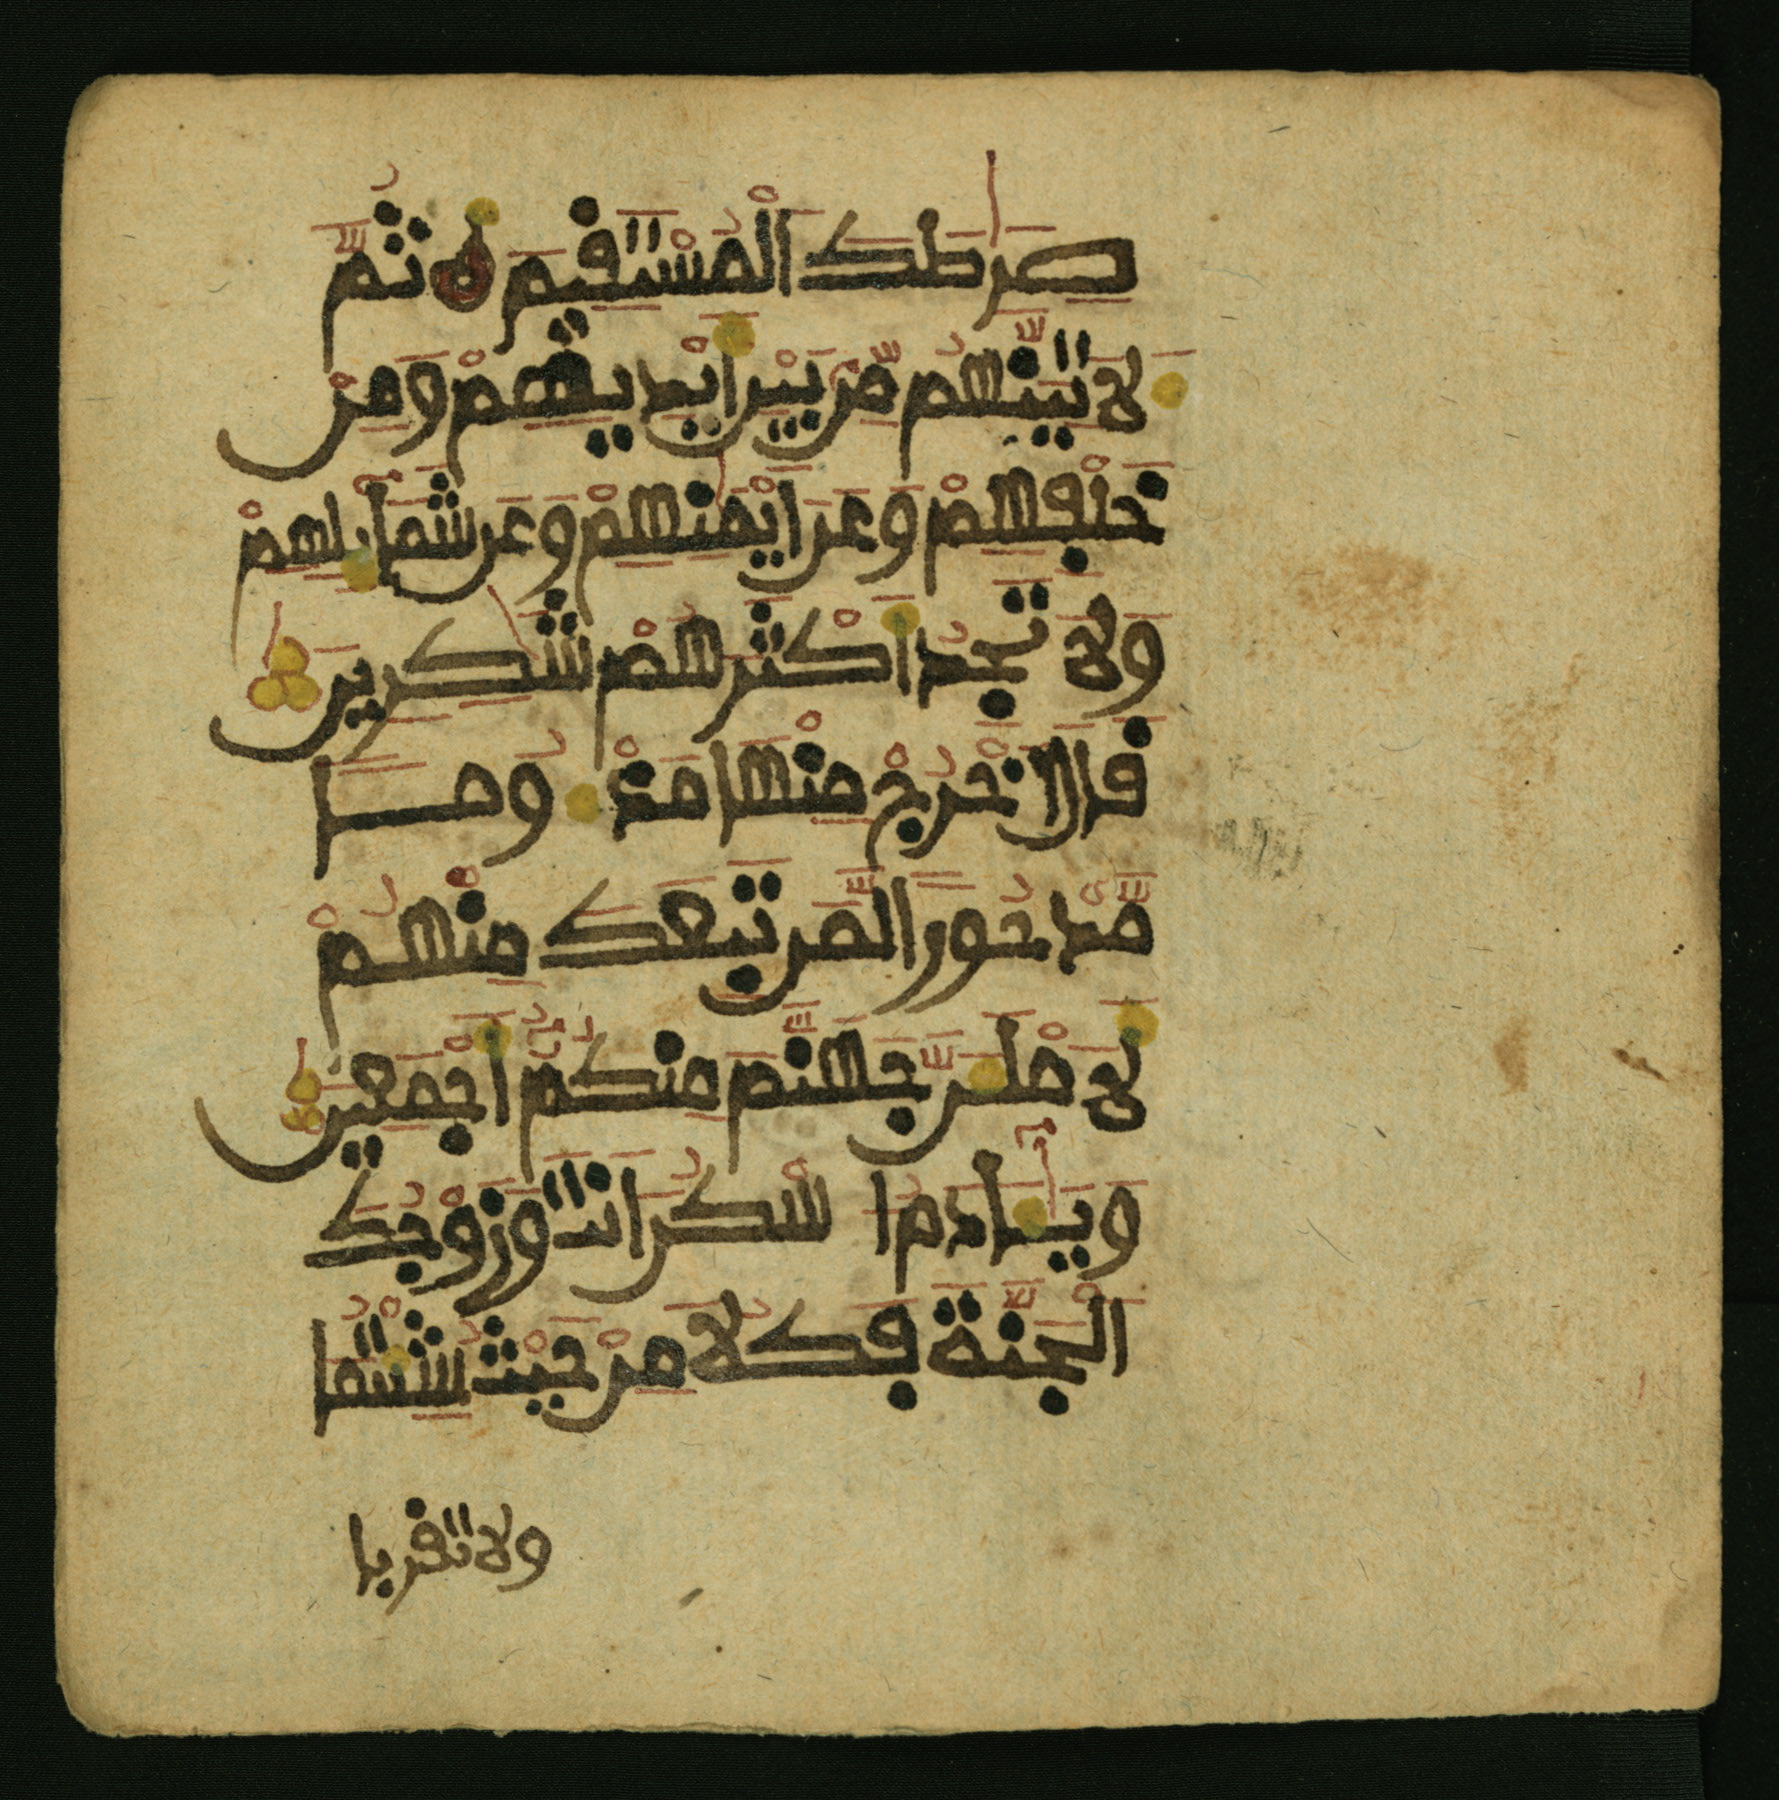 صِرَٰطَكَ اَلْمُسْتَقِيمَ ثُمَّ
لَأَتِيَنَّهُم مِّن بَيْنِ أَيْدِيهِمْ وَمِنْ
خَلْفِهِمْ وَعَنَ اَيْمَٰنِهِمْ وَعَن شَمَآئِلِهِمْ
وَلَا تَجِدُ أَكْثَرَهُمْ شَٰكِرِينَ
قَالَ اَخْرُجْ مِنْهَا مَذْءُومًا
مَّدْحُورًا لَّمَن تَبِعَكَ مِنْهُمْ
لَأَمْلَأَنَّ جَهَنَّمَ مِنكُمُ أَجْمَعِينَ
وَيَٰـَٔادَمُ ا سْكُنَ اَنتَ وَزَوْجُكَ
اَلْجَنَّةَ فَكُلَا مِنْ حَيْثُ شِئْتُمَا
ولا تقربا